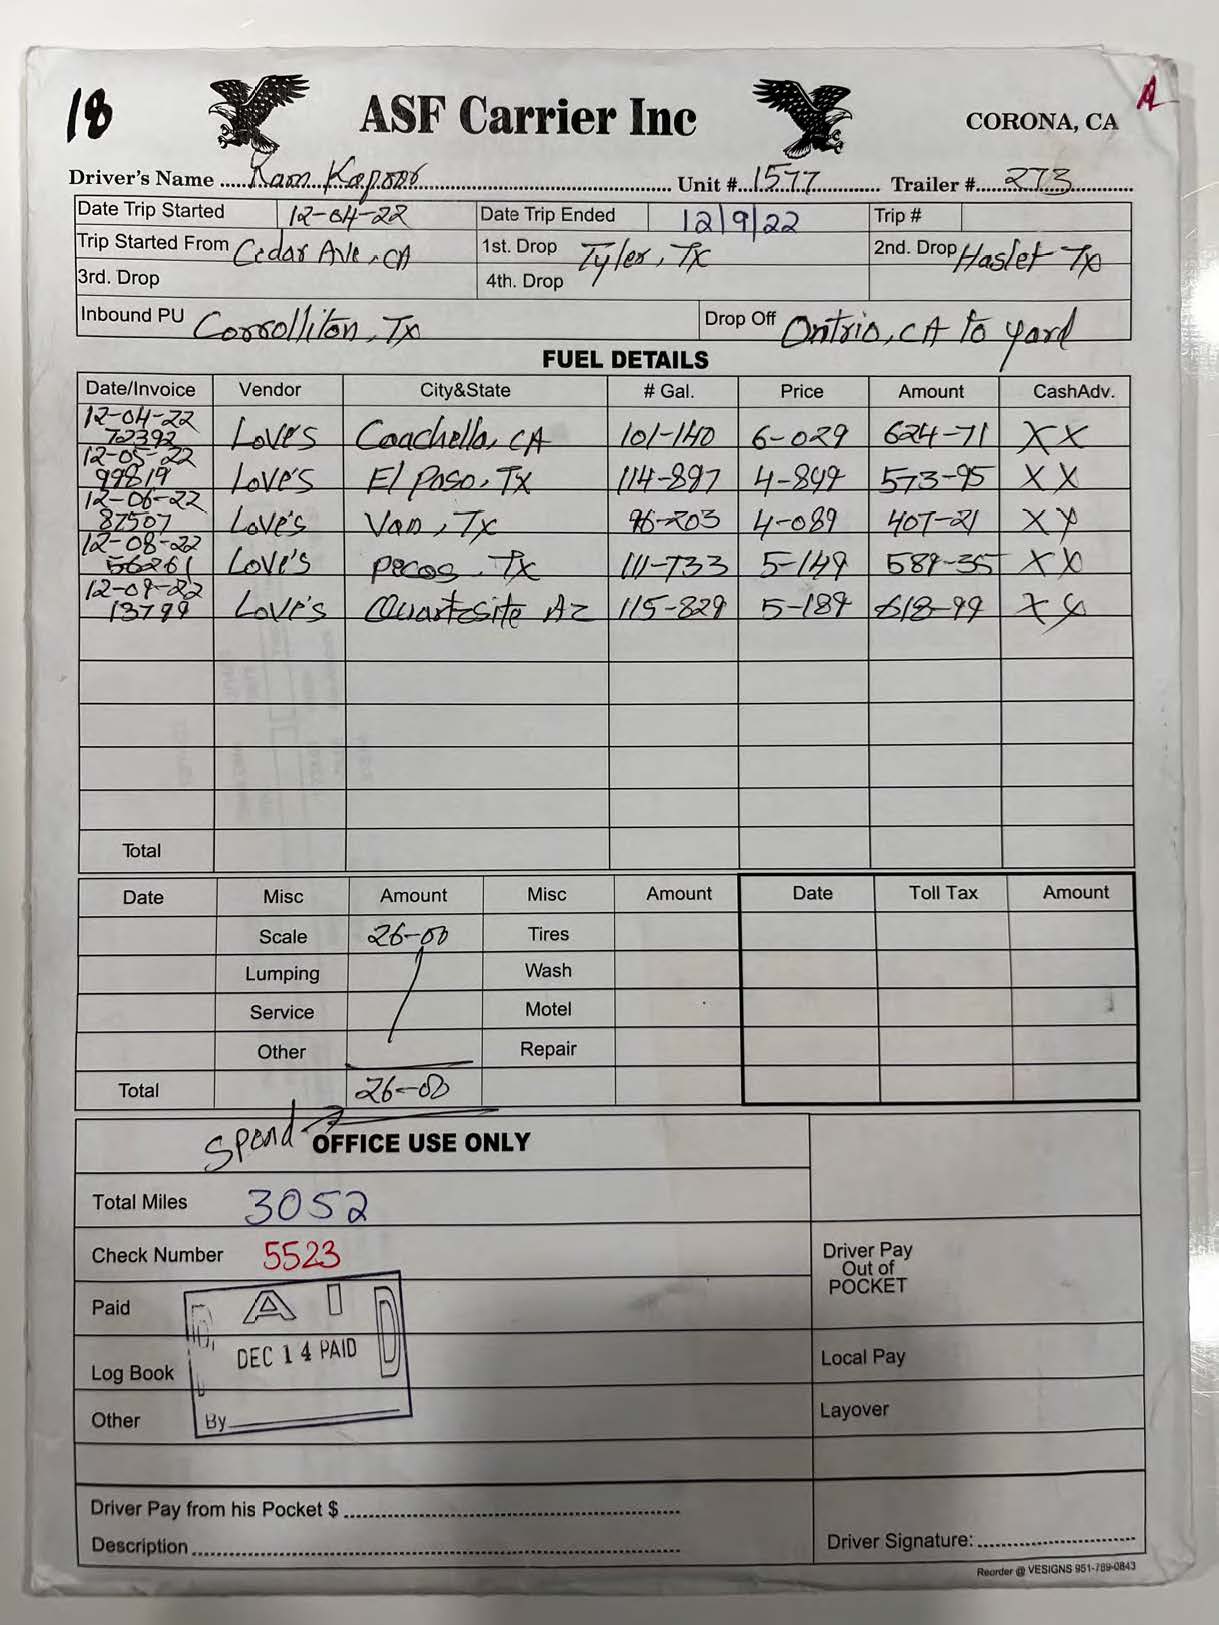 18
ASF Carrier Inc
CORONA, CA
A
Driver's Name Ram Kapoor Unit # 1577 Trailer # 273
Date Trip Started 12-04-22 Date Trip Ended 12/9/22 Trip #
Trip Started From Cedar Ave, CA 1st. Drop Tyler, TX 2nd. Drop Haslet TX
3rd. Drop 4th. Drop
Inbound PU Corrolliton, TX Drop Off Ontrio, CA to yard
FUEL DETAILS
Date/Invoice Vendor City&State # Gal. Price Amount CashAdv.
12-04-22
72392 Love's Coachella, CA 101-140 6-029 624-71 XX
12-05-22
99819 Love's El Paso, TX 114-897 4-849 573-95 XX
12-06-22
87507 Love's Van, TX 96-203 4-089 407-21 XX
12-08-22
56261 Love's Pecos, TX 111-733 5-149 589-35 XX
12-09-22
13799 Love's Quartzsite AZ 115-829 5-189 618-99 XX
Total
Date Misc Amount Misc Amount Date Toll Tax Amount
Scale 26-00 Tires
Lumping Wash
Service Motel
Other Repair
Total 26-00
Spend OFFICE USE ONLY
Total Miles 3052
Check Number 5523
Driver Pay
Out of
POCKET
Paid
PAID
DEC 14 PAID
By
Log Book
Local Pay
Other
Layover
Driver Pay from his Pocket $
Description
Driver Signature:
Reorder @ VESIGNS 951-789-0843